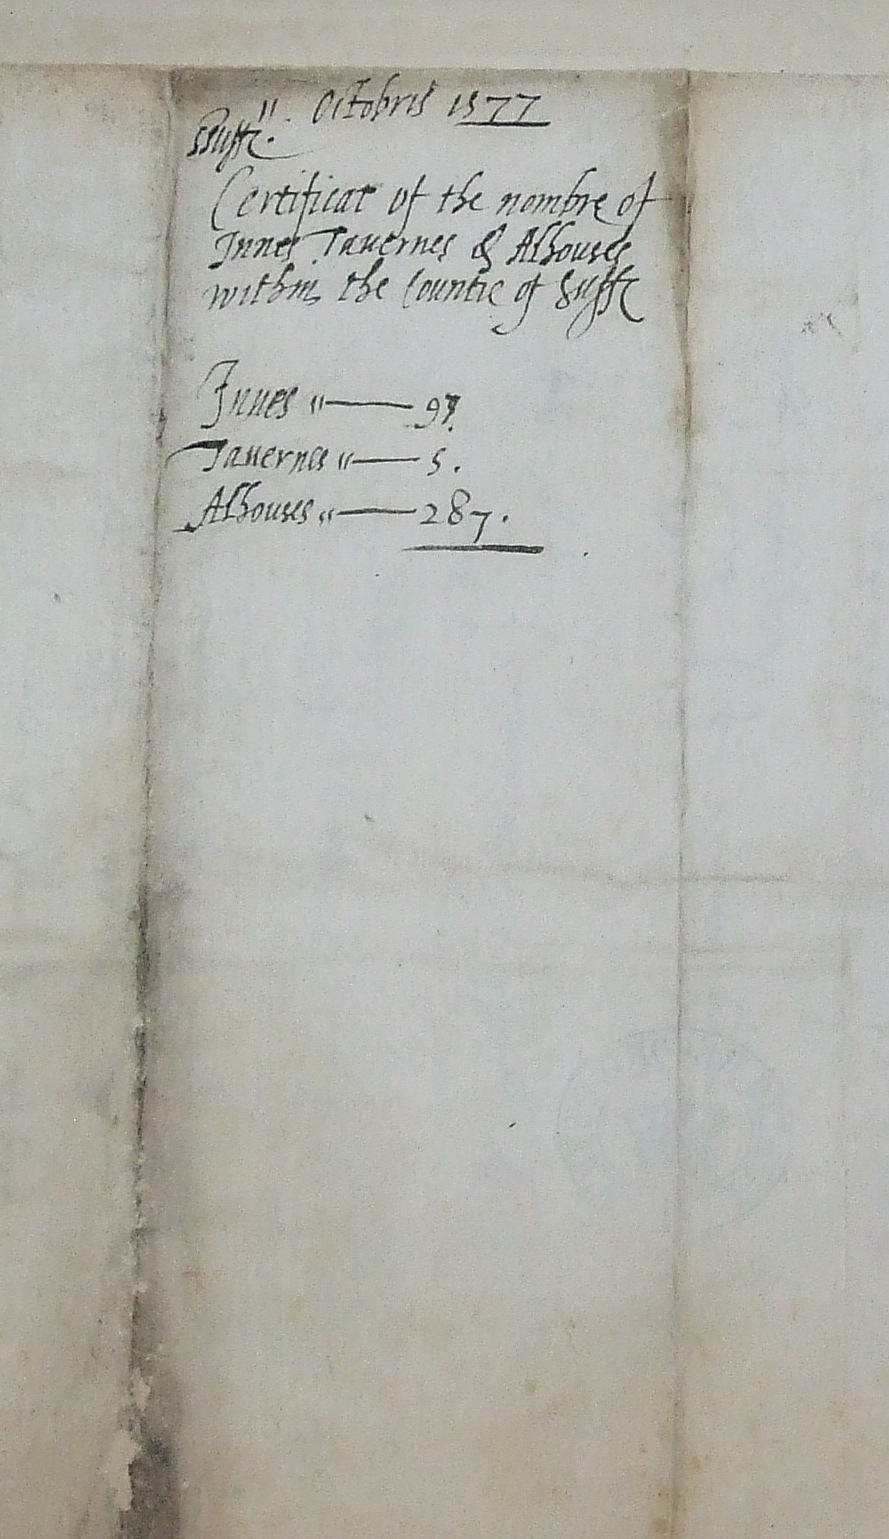 Octobris 1577
Suff.
Certificat of the nombre of
Innes Tauernes & Alhouses
within the Countie of Suff
Innes " —— 93.
Tauernes " —— 5.
Alhouses " —— 287.